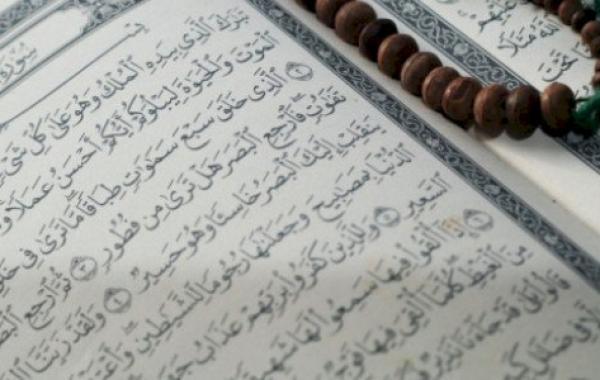 سُورَةُ
تَبَٰرَكَ ٱلَّذِى بِيَدِهِ ٱلْمُلْكُ وَهُوَ عَلَىٰ كُلِّ شَىْءٍ
ٱلْمَوْتَ وَٱلْحَيَوٰةَ لِيَبْلُوَكُمْ أَيُّكُمْ أَحْسَنُ عَمَلًا
ٱلَّذِى خَلَقَ سَبْعَ سَمَٰوَٰتٍ طِبَاقًا مَّا تَرَىٰ فِى
تَفَٰوُتٍ فَٱرْجِعِ ٱلْبَصَرَ هَلْ تَرَىٰ مِن فُطُورٍ ٣ ثُمَّ ٱرْجِعِ
يَنقَلِبْ إِلَيْكَ ٱلْبَصَرُ خَاسِئًا وَهُوَ حَسِيرٌ ٤ وَلَقَدْ زَيَّنَّا
ٱلدُّنْيَا بِمَصَٰبِيحَ وَجَعَلْنَٰهَا رُجُومًا لِّلشَّيَٰطِينِ
ٱلسَّعِيرِ ٥ وَلِلَّذِينَ كَفَرُوا۟ بِرَبِّهِمْ عَذَابُ
إِذَآ أُلْقُوا۟ فِيهَا سَمِعُوا۟ لَهَا
مِنَ ٱلْغَيْظِ كُلَّمَآ أُلْقِىَ فِيهَا فَوْجٌ
قَالُوا۟ بَلَىٰ قَدْ جَآءَنَا نَذِيرٌ